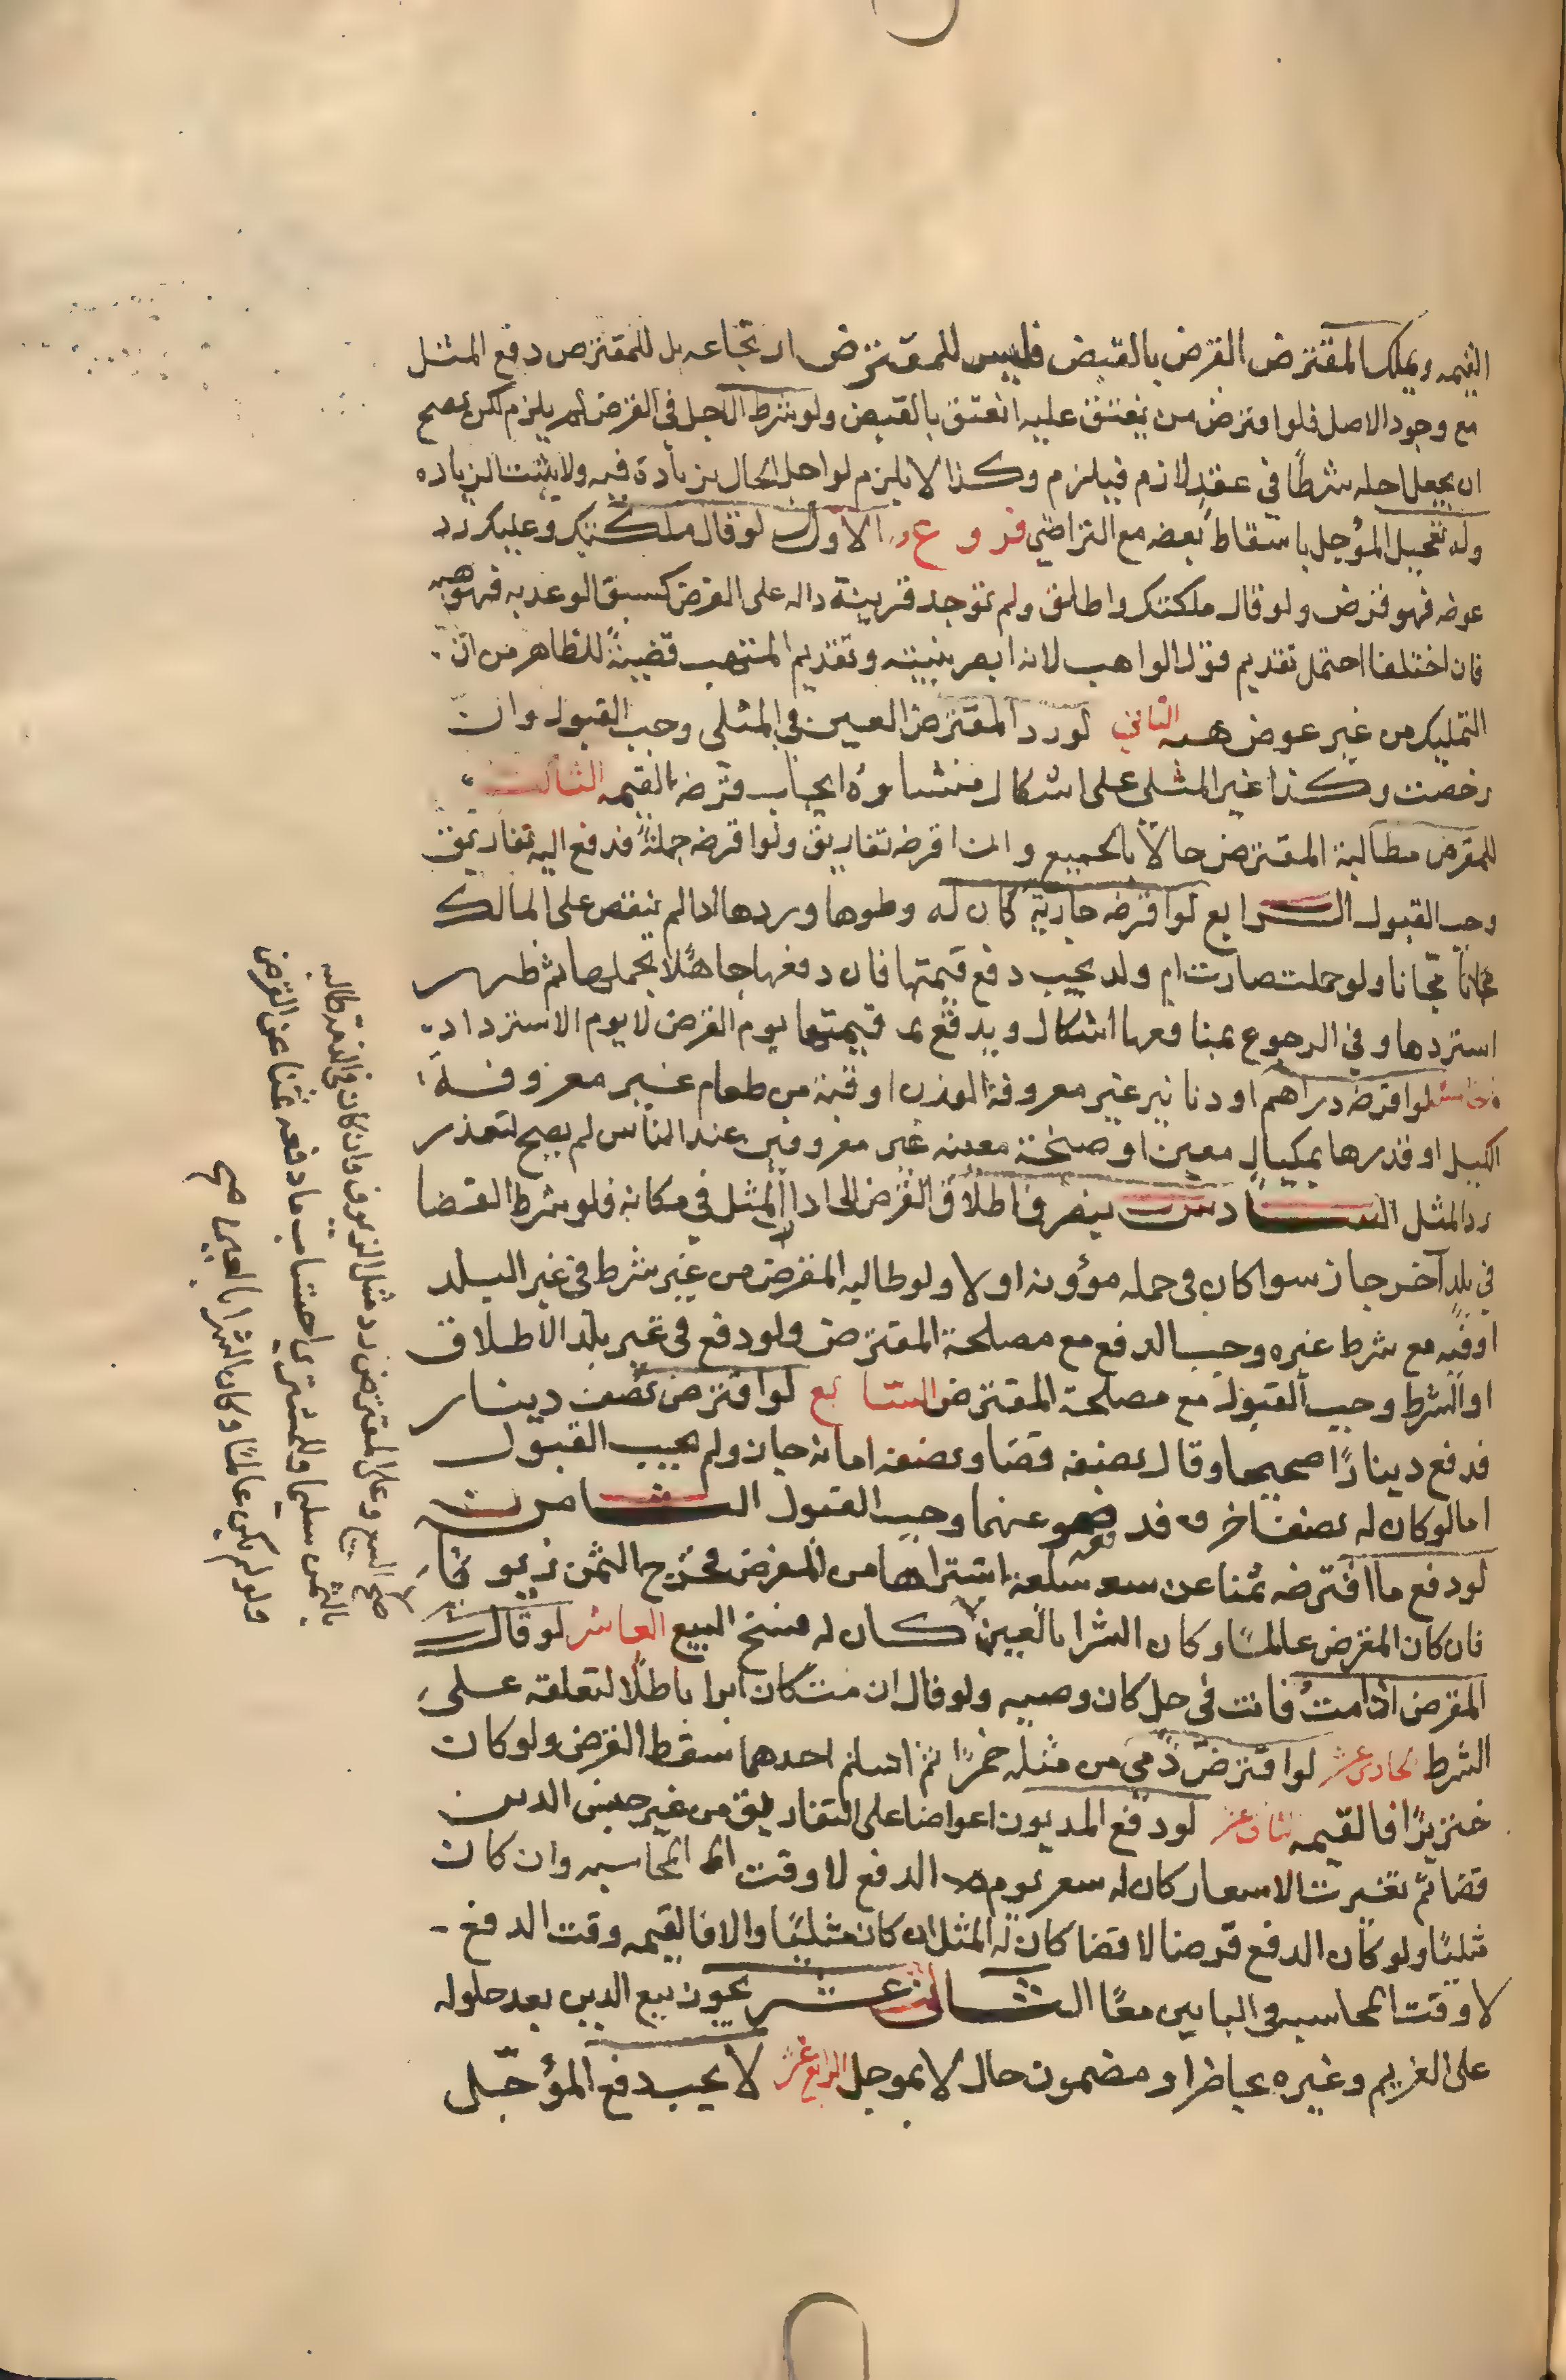 القيمه ويملك المقترض القرض بالقبض فليس للمقترض ارتجاعه بل للمقترض دفع المثل
مع وجود الاصل فلو اقترض من ينعتق عليه انعتق بالقبض ولو شرط الاجل في القرض لم يلزم لكن يصح
ان يجعل اجله شرطًا في عقد لازم فيلزم وكذا لا يلزم لو اجل الحال بزيادة فيه ولا يثبت الزياده
وله تعجيل المؤجل باسقاط بعضه مع التراضي فروع الاول لو قال ملكتك وعليك رد
عوضه فهو قرض ولو قال ملكتك واطلق ولم توجد قرينة داله على القرض كسبق الوعد به فهو هبه
فان اختلفا احتمل تقديم قول الواهب لانه ابصر بنيته وتقديم المتهب قضيةً للظاهر من ان
التمليك من غير عوض هبه الثاني لو رد المقترض العين في المثلي وجب القبول وان
رخصت وكذا غير المثلي على اشكال منشاؤه ايجاب قرضه القيمه الثالث
للمقرض مطالبة المقترض حالًا بالجميع وان اقرضه تفاريق ولو اقرضه جملةً فدفع اليه تفاريق
وجب القبول الرابع لو اقترض جاريةً كان له وطوها وردها اذا لم ينقص على المالك
مجانا ولو حملت صارت ام ولد يجب دفع قيمتها فان دفعها جاهلًا بحملها ثم ظهر
استردها وفي الرجوع بمنافعها اشكال ويدفع قيمتها يوم القرض لا يوم الاسترداد
الخامس لو اقترض دراهم او دنانير غير معروفة الوزن او قبة من طعام غير معروفة
الكيل او قدرها بمكيال معين او صنجة معينه غير معروفين عند الناس لم يصح لتعذر
رد المثل السادس ينصرف اطلاق القرض الى ادا المثل في مكانه فلو شرط القضا
في بلد آخر جاز سوا كان في حمله مؤونه او لا ولو طالبه المقرض من غير شرط في غير البلد
او فيه مع شرط غيره وجب الدفع مع مصلحة المقترض ولو دفع في غير بلد الاطلاق
او الشرط وجب القبول مع مصلحة المقترض السابع لو اقترض نصف دينار
فدفع دينارًا صحيحا وقال نصفه قضا ونصفه امانه جاز ولم يجب القبول
اما لو كان له نصف اخر فدفعه عنهما وجب القبول الثامن
لو دفع ما اقترضه ثمنا عن سلعة اشتراها من المقرض فخرج الثمن زيوفًا
فان كان المقرض عالمًا وكان الشرا بالعين كان له فسخ البيع العاشر لو قال
المقرض اذا مت فانت في حل كان وصيه ولو قال ان مت كان ابرا باطلًا لتعلقه على
الشرط الحادي عشر لو اقترض ذمي من مثله خمرًا ثم اسلم احدهما سقط القرض ولو كان
خنزيرًا فالقيمه الثاني عشر لو دفع المديون اعواضا على التفاريق من غير جنس الدين
قضا ثم تغيرت الاسعار كان له سعر يوم الدفع لا وقت المحاسبه وان كان
مثليًا ولو كان الدفع قرضا لا قضا كان له المثل ان كان مثليًا والا فالقيمه وقت الدفع
لا وقت المحاسبه في البابين معًا الثالث عشر يجوز بيع الدين بعد حلوله
على الغريم وغيره بحاضر او مضمون حال لا بموجل الرابع عشر لا يجب دفع المؤجّل
صح البيع وعلى المقترض رد مثل الزيوف فان كان في الذمه طالبه
بالثمن سليما وللمشتري احتساب ما دفعه ثمنا عن القرض
ولو لم يكن عالمًا وكان الشرا بالعين صح